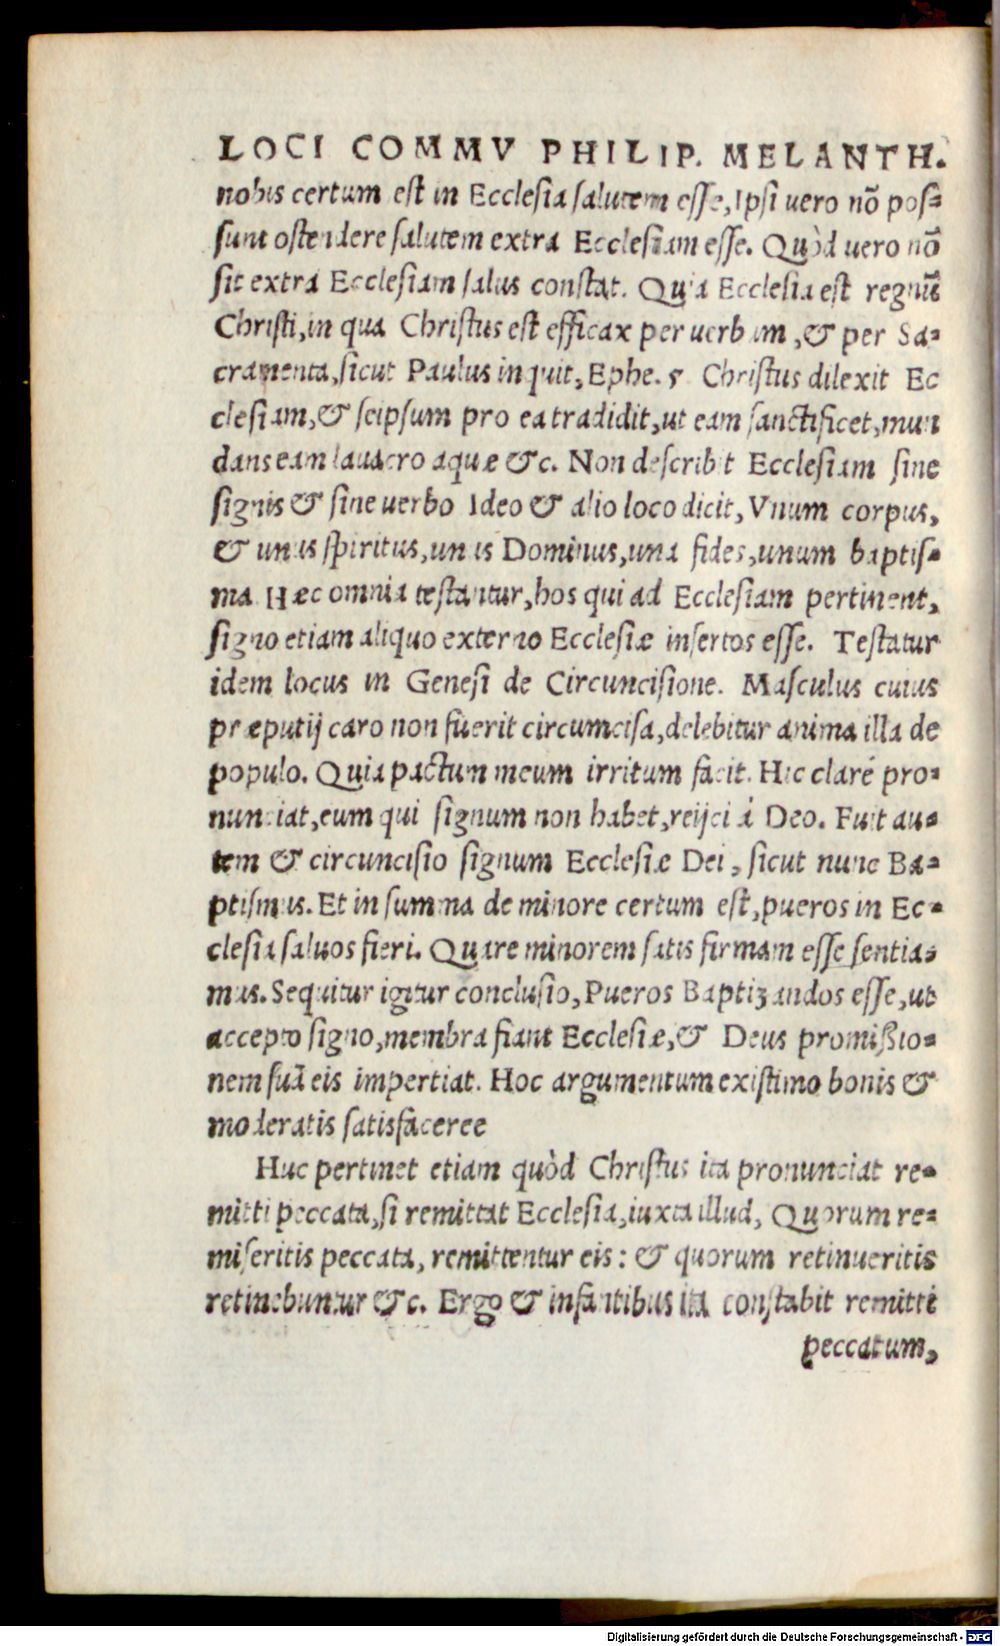 LOCI COMMV PHILIP. MELANTH.
nobis certum est in Ecclesia salutem esse, Ipsi uero nõ pos-
sunt ostendere salutem extra Ecclesiam esse. Quòd uero nõ
sit extra Ecclesiam salus constat. Quia Ecclesia est regnũ
Christi, in qua Christus est efficax per uerbum, & per Sa-
cramenta, sicut Paulus inquit, Ephe. 5 Christus dilexit Ec
clesiam, & seipsum pro ea tradidit, ut eam sanctificet, mun
dans eam lauacro aquæ &c. Non describit Ecclesiam sine
signis & sine uerbo Ideo & alio loco dicit, Vnum corpus,
& unus spiritus, unus Dominus, una fides, unum baptis-
ma Hæc omnia testantur, hos qui ad Ecclesiam pertinent,
signo etiam aliquo externo Ecclesiæ insertos esse. Testatur
idem locus in Genesi de Circuncisione. Masculus cuius
præputij caro non fuerit circumcisa, delebitur anima illa de
populo. Quia pactum meum irritum facit. Hic claré pro-
nunciat, eum qui signum non habet, reijci á Deo. Fuit au-
tem & circuncisio signum Ecclesiæ Dei, sicut nunc Ba-
ptismus. Et in summa de minore certum est, pueros in Ec-
clesia saluos fieri. Quare minorem satis firmam esse sentia-
mus. Sequitur igitur conclusio, Pueros Baptizandos esse, ut
accepto signo, membra fiant Ecclesiæ, & Deus promißio-
nem suã eis impertiat. Hoc argumentum existimo bonis &
moderatis satisfaceree
Huc pertinet etiam quòd Christus ita pronunciat re-
mitti peccata, si remittat Ecclesia, iuxta illud, Quorum re-
miseritis peccata, remittentur eis: & quorum retinueritis
retinebuntur &c. Ergo & infantibus ita constabit remitti
peccatum,
Digitalisierung gefördert durch die Deutsche Forschungsgemeinschaft - DFG